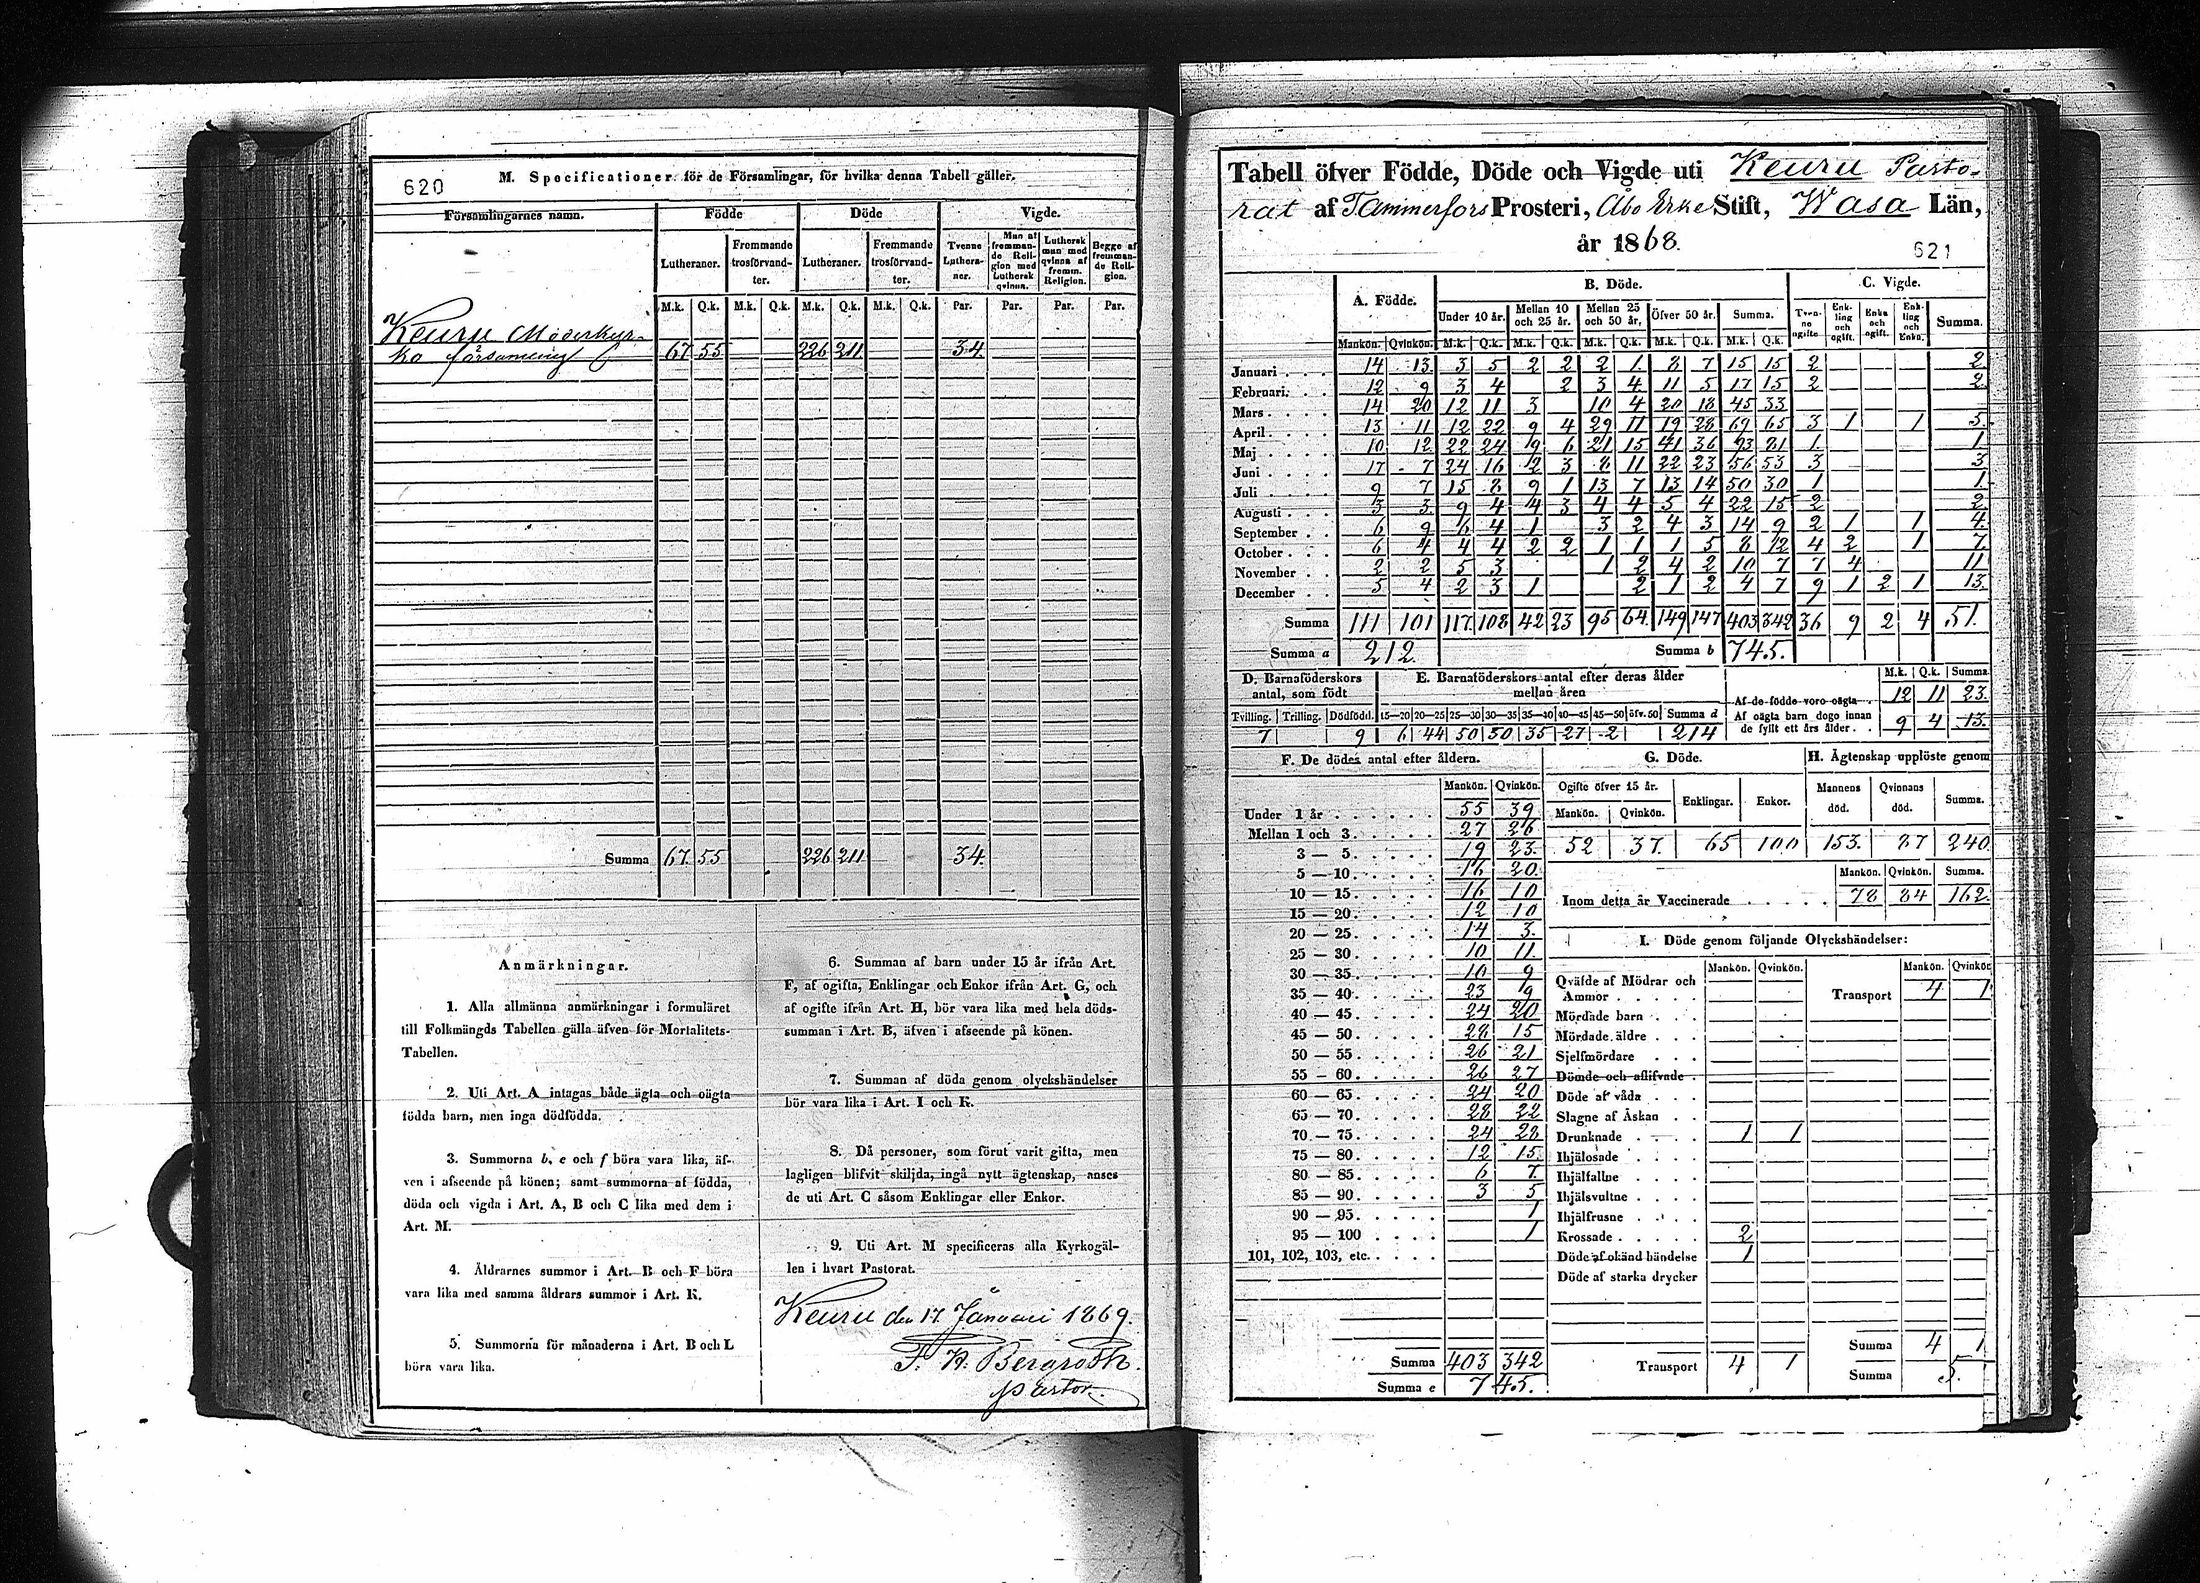 620
M. Specificationer för de Församlingar, för hvilka denna Tabell gäller.
Församlingarnes namn. Födde Döde Vigde.
Lutheraner. Fremmande trosförvandter. Lutheraner. Fremmande trosförvandter. Tvenne Lutheraner. Man af fremmande Religion med Luthersk qvinna. Luthersk man med qvinna af fremm. Religion. Begge af fremmande Religion.
M.k. Q.k. M.k. Q.k. M.k. Q.k. M.k. Q.k. Par. Par. Par. Par.
Keuru Moderkyr-
ko församling 67 55 226 211 34
Summa 67 55 226 211 34
Anmärkningar.
1. Alla allmänna anmärkningar i formuläret
till Folkmängds Tabellen gälla äfven för Mortalitets-
Tabellen.
2. Uti Art. A intagas både ägta och oägta
födda barn, men inga dödfödda.
3. Summorna b, e och f böra vara lika, äf-
ven i afseende på könen; samt summorna af födda,
döda och vigda i Art. A, B och C lika med dem i
Art. M.
4. Åldrarnes summor i Art. B och F böra
vara lika med samma åldrars summor i Art. K.
5. Summorna för månaderna i Art. B och L
böra vara lika.
6. Summan af barn under 15 år ifrån Art.
F, af ogifta, Enklingar och Enkor ifrån Art. G, och
af ogifte ifrån Art. H, bör vara lika med hela döds-
summan i Art. B, äfven i afseende på könen.
7. Summan af döda genom olyckshändelser
bör vara lika i Art. I och K.
8. Då personer, som förut varit gifta, men
lagligen blifvit skiljda, ingå nytt ägtenskap, anses
de uti Art. C såsom Enklingar eller Enkor.
9. Uti Art. M specificeras alla Kyrkogäl-
len i hvart Pastorat.
Keuru den 17 Januari 1869.
F. H. Bergroth.
Pastor.
Tabell öfver Födde, Döde och Vigde uti Keuru Pasto-
rat af Tammerfors Prosteri, Åbo Erke Stift, Wasa Län,
år 1868.
621
A. Födde. B. Döde. C. Vigde.
Under 10 år. Mellan 10 och 25 år. Mellan 25 och 50 år. Öfver 50 år. Summa. Tvenne ogifte Enkling och ogift. Enka och ogift. Enkling och Enka. Summa.
Mankön. Qvinkön. M.k. Q.k. M.k. Q.k. M.k. Q.k. M.k. Q.k. M.k. Q.k.
Januari 14 13 3 5 2 2 2 1 8 7 15 15 2 2
Februari 12 9 3 4 2 3 4 11 5 17 15 2 2
Mars 14 20 12 11 3 10 4 20 18 45 33
April 13 11 12 22 9 4 29 11 19 28 69 65 3 1 1 5
Maj 10 12 22 24 9 6 21 15 41 36 93 81 1 1
Juni 17 7 24 16 2 3 8 11 22 23 56 53 3 3
Juli 9 7 15 8 9 1 13 7 13 14 50 30 1 1
Augusti 3 3 9 4 4 3 4 4 5 4 22 15 2 2
September 6 9 6 4 1 3 2 4 3 14 9 2 1 1 4
October 6 4 4 4 2 2 1 1 1 5 8 12 4 2 1 7
November 2 2 5 3 1 2 4 2 10 7 7 4 11
December 5 4 2 3 1 2 1 2 4 7 9 1 2 1 13
Summa 111 101 117 108 42 23 95 64 149 147 403 342 36 9 2 4 51
Summa a 212. Summa b 745.
D. Barnaföderskors antal, som födt
Tvilling. Trilling. Dödfödd.
7 9
E. Barnaföderskors antal efter deras ålder mellan åren
15—20 20—25 25—30 30—35 35—40 40—45 45—50 öfv. 50 Summa d
6 44 50 50 35 27 2 214
M.k. Q.k. Summa
Af de födde voro oägta 12 11 23
Af oägta barn dogo innan
de fyllt ett års ålder 9 4 13
F. De dödes antal efter åldern.
Mankön. Qvinkön.
Under 1 år 55 39
Mellan 1 och 3 27 26
3 — 5 19 23
5 — 10 16 20
10 — 15 16 10
15 — 20 12 10
20 — 25 14 3
25 — 30 10 11
30 — 35 10 9
35 — 40 23 9
40 — 45 24 20
45 — 50 28 15
50 — 55 26 21
55 — 60 26 27
60 — 65 24 20
65 — 70 28 22
70 — 75 24 28
75 — 80 12 15
80 — 85 6 7
85 — 90 3 5
90 — 95 1
95 — 100 1
101, 102, 103, etc.
Summa 403 342
Summa e 745.
G. Döde.
Ogifte öfver 15 år. Enklingar. Enkor.
Mankön. Qvinkön.
52 37 65 100
H. Ägtenskap upplöste genom
Mannens död. Qvinnans död. Summa.
153 87 240
Mankön. Qvinkön. Summa.
Inom detta år Vaccinerade 78 84 162
I. Döde genom följande Olyckshändelser:
Mankön. Qvinkön. Mankön. Qvinkön
Qväfde af Mödrar och
Ammor
Mördade barn
Mördade äldre
Sjelfmördare
Dömde och aflifvade
Döde af våda
Slagne af Åskan
Drunknade 1 1
Ihjälosade
Ihjälfallne
Ihjälsvultne
Ihjälfrusne
Krossade 2
Döde af okänd händelse 1
Döde af starka drycker
Transport 4 1
Transport 4 1
Summa 4 1
Summa 5.